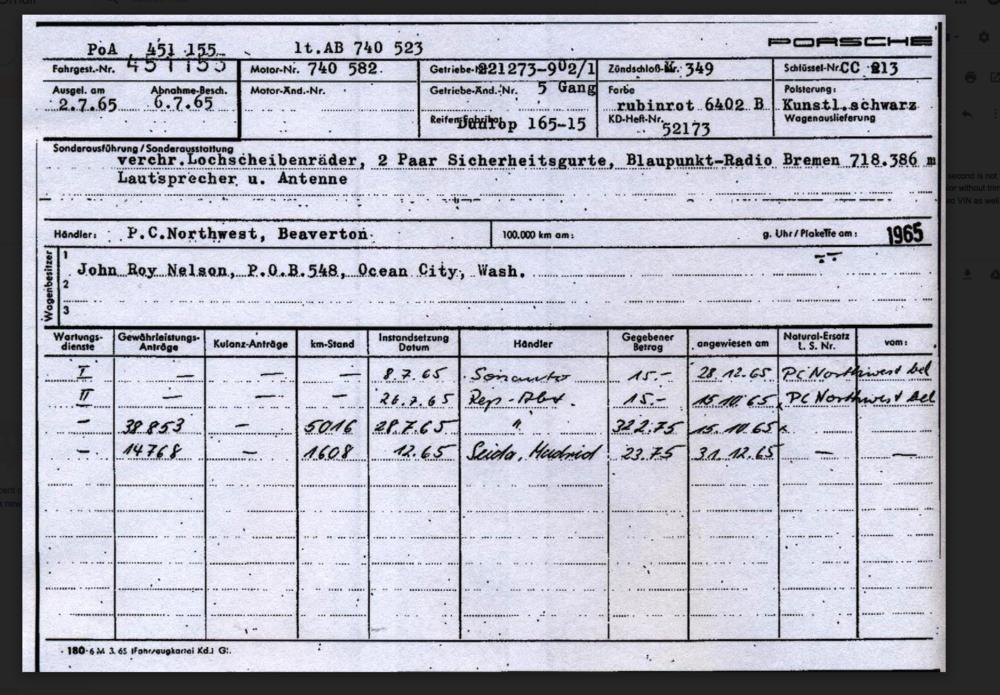 PoA 451 155 lt.AB 740 523 PORSCHE
Fahrgest.-Nr. 451155 Motor-Nr. 740 582 Getriebe- 221273-902/1 Zündschloß-Nr. 349 Schlüssel-Nr. CC 213
Ausgel. am Abnahme-Besch. Motor-Änd.-Nr. Getriebe-Änd.-Nr. 5 Gang Farbe Polsterung:
2.7.65 6.7.65 rubinrot 6402 B Kunstl.schwarz
Reifenfabrikat Dunlop 165-15 KD-Heft-Nr. 52173 Wagenauslieferung
Sonderausführung / Sonderausstattung
verchr.Lochscheibenräder, 2 Paar Sicherheitsgurte, Blaupunkt-Radio Bremen 718.386 m
Lautsprecher u. Antenne
Händler: P.C.Northwest, Beaverton 100.000 km am: g. Uhr / Plakette am: 1965
Wagenbesitzer
1 John Roy Nelson, P.O.B.548, Ocean City, Wash.
2
3
Wartungs-dienste Gewährleistungs-Anträge Kulanz-Anträge km-Stand Instandsetzung Datum Händler Gegebener Betrag angewiesen am Natural-Ersatz L. S. Nr. vom:
I — — — 8.7.65 Sonauto 15.- 28.12.65 PC Northwest bel
II — — — 26.7.65 Rep-Abt. 15.- 15.10.65 PC Northwest bel
- 38853 - 5016 28.7.65 " 322.75 15.10.65
- 14768 - 1608 12.65 Seida, Madrid 23.75 31.12.65 — —
180-6 M 3. 65 (Fahrzeugkartei Kd.) G.